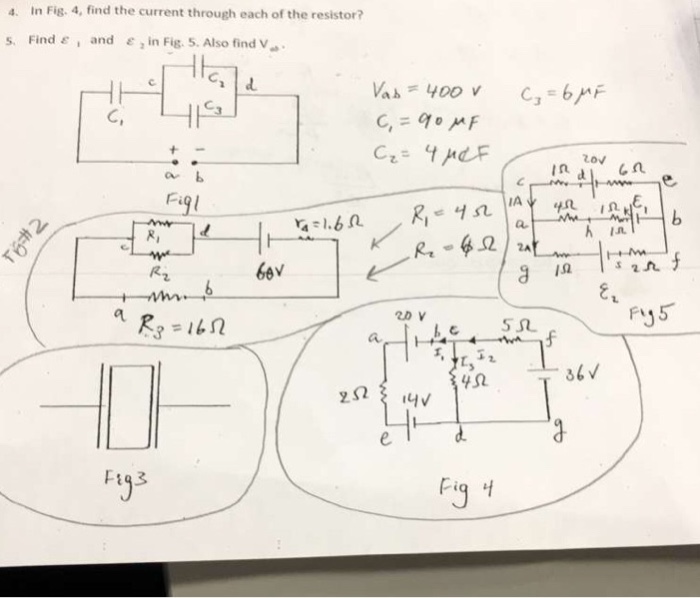 4. In Fig. 4, find the current through each of the resistor?
5. Find ε 1 and ε 2 in Fig. 5. Also find V ab.
C1
c
C2
C3
d
+ -
a b
Fig1
Vab = 400 V
C1 = 90 µF
C2 = 4 µF
C3 = 6 µF
R1
c
d
R2
60V
r4 = 1.6 Ω
a
b
R3 = 16 Ω
R1 = 4 Ω
R2 = 6 Ω
1Ω d 20V 6Ω
c
e
1A
4Ω
1Ω
E1
a
h
1Ω
b
2A
g
1Ω
s 2Ω f
E2
Fig 5
Fig3
20 V
a
b c
5Ω
f
I1
I3
I2
4Ω
36V
2Ω
14V
e
d
g
Fig 4